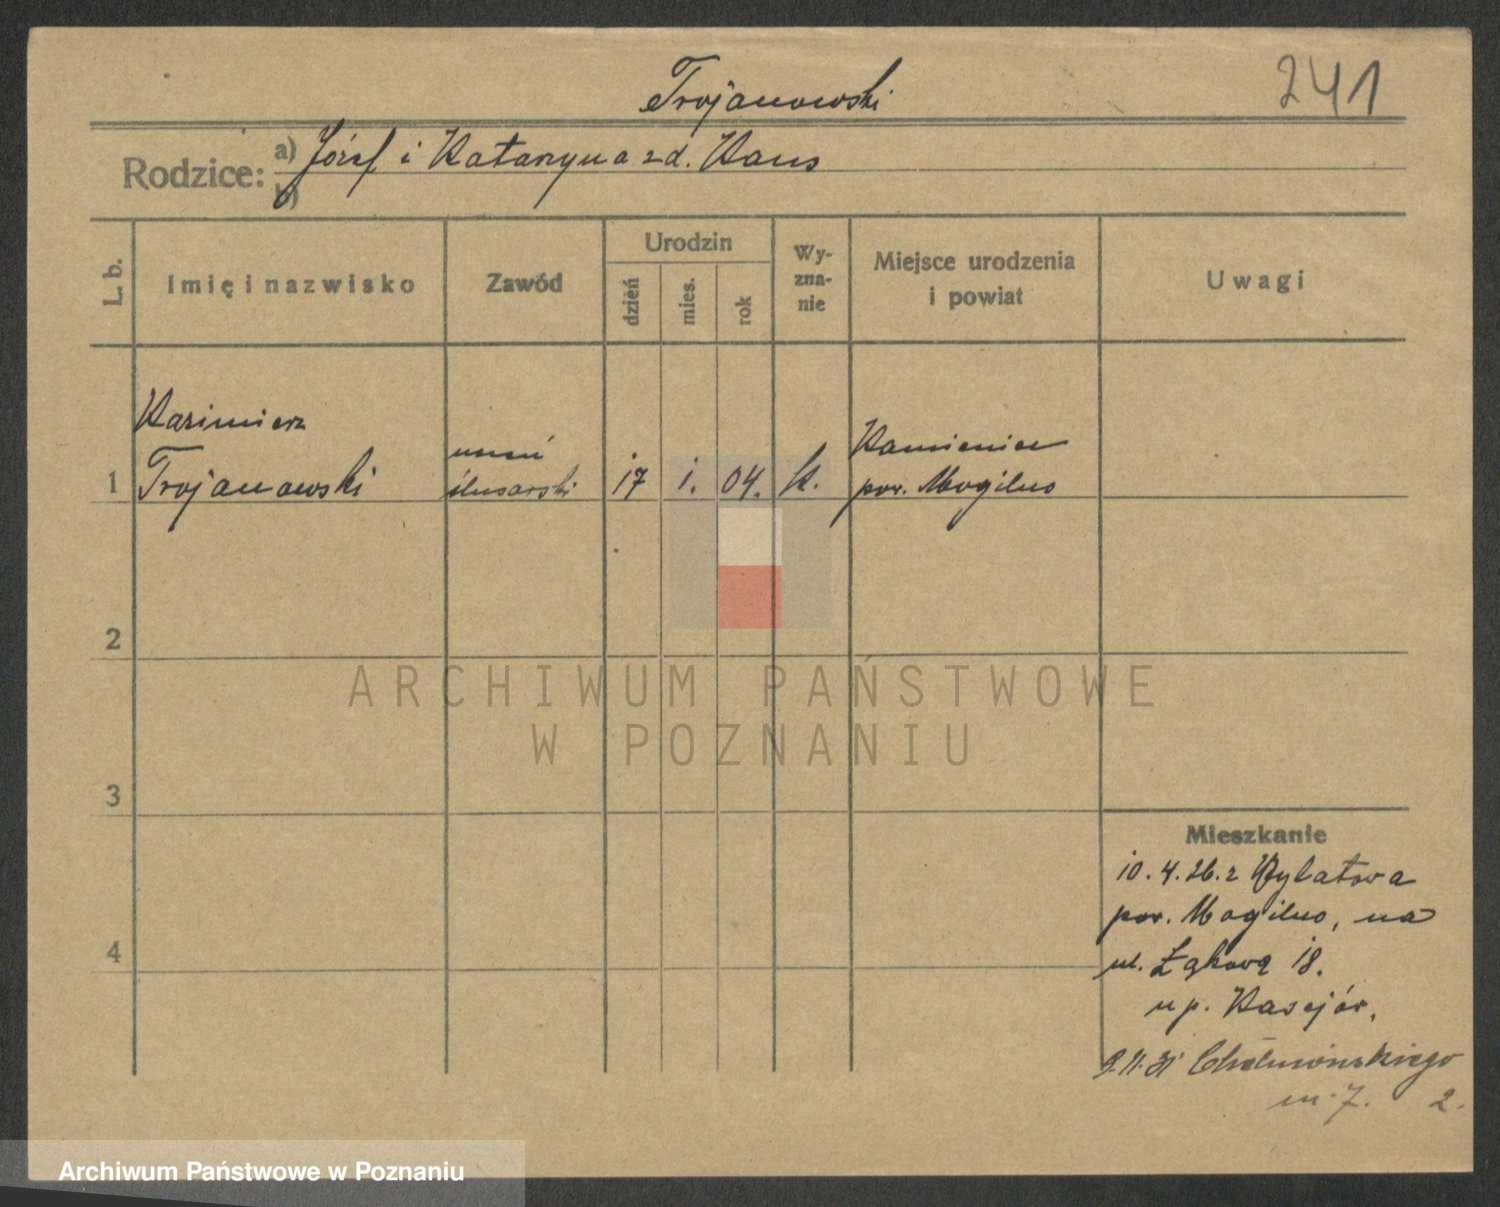 Trojanowski
241
Rodzice:
a) Józef i Katarzyna zd. Kaus
b)
L. b.
Imię i nazwisko
Zawód
Urodzin
dzień
mies.
rok
Wy-
zna-
nie
Miejsce urodzenia
i powiat
Uwagi
Kazimierz
1 Trojanowski
uczeń
ślusarski
17
1.
04.
k.
Kamieniec
pow. Mogilno
2
3
4
ARCHIWUM PAŃSTWOWE
W POZNANIU
Mieszkanie
10.4.26. z Wylatowa
pow. Mogilno, na
ul. Łąkową 18.
u p. Kasejów.
9.11.31
m. 7. 2.
Archiwum Państwowe w Poznaniu